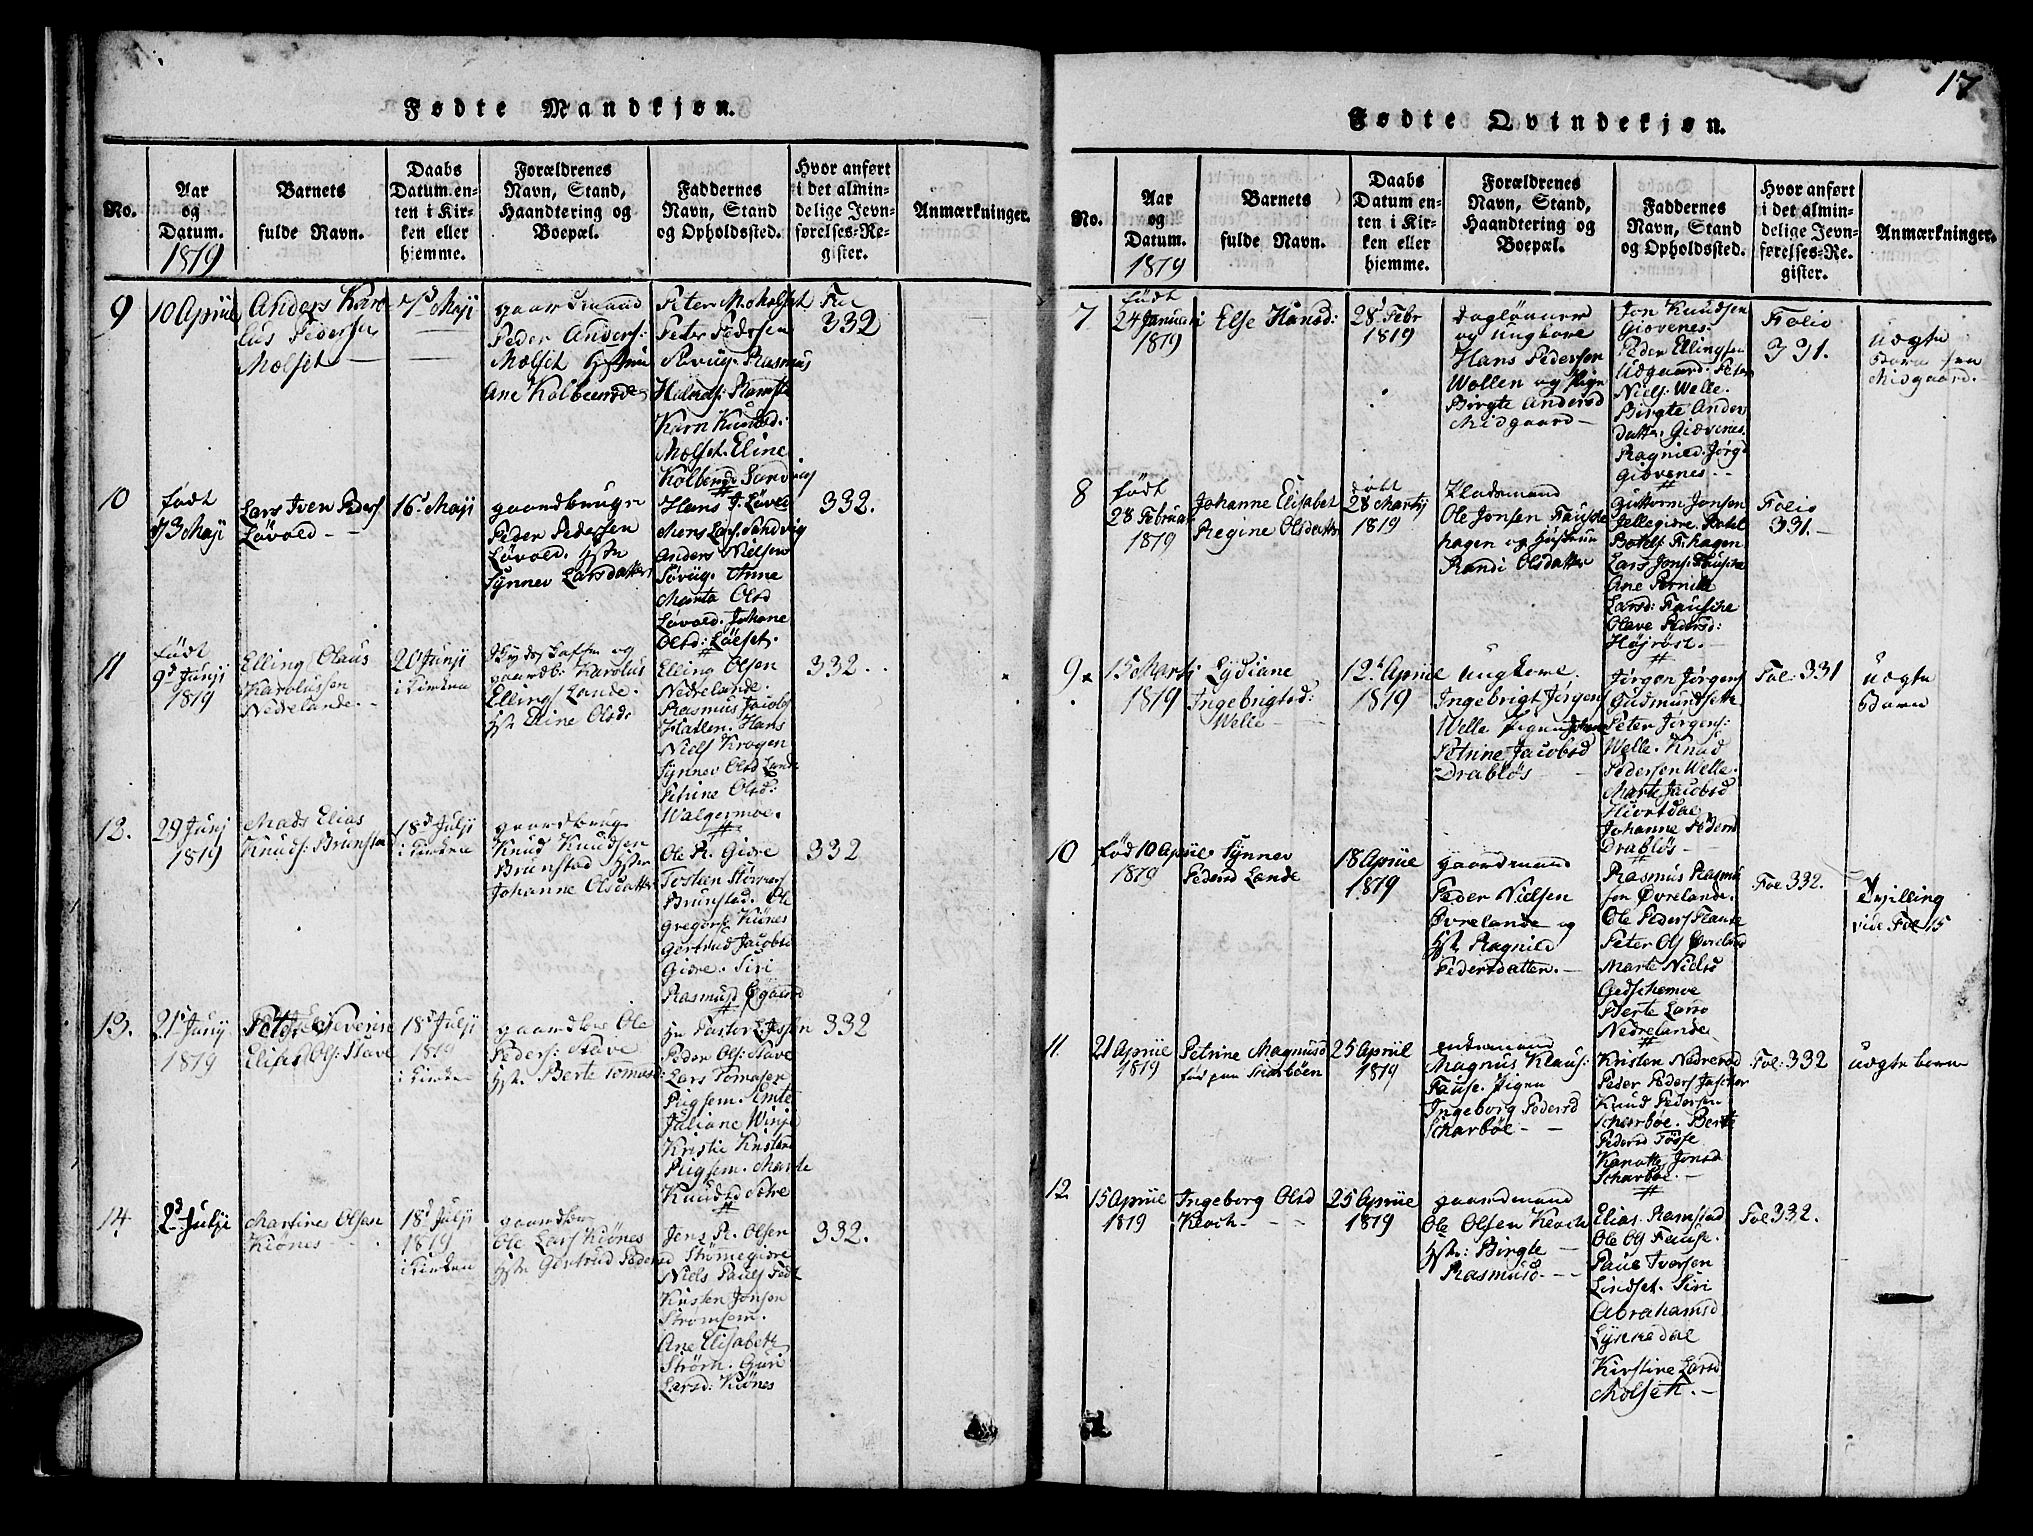 17
Fødte Mandkjøn.
No.
Aar
og
Datum.
1819
Barnets
fulde Navn.
Daabs
Datum en-
ten i Kir-
ken eller
hjemme.
Forældrenes
Navn, Stand,
Haandtering og
Boepæl.
Faddernes
Navn, Stand
og Opholdssted.
Hvor anført
i det almin-
delige Jevn-
førelses-Re-
gister.
Anmærkninger.
9
10 Apriil
Anders Karo
lus Pedersen
Molset
Maji
gaardmand
Peder Anders:
Molset
Ane
Peter Molset
Peter Pedersen
Rasmus
Karn Knudsd:
Molset. Eline
Fol
332
10
født
Maji
Lars Iven Peders
Løvold
16 Maji
gaardbruger
Peder Pedersen
Løvold. Hstr
Synnev Larsdatter
Hans J. Løvold
Mons Lars. Sandvig
Anders Nielsen
Søvig. Anne
Marta Olsd
Løvold. Johane
Olsd:
332.
11
født
9d Junji
1819
Elling Olaus
Karolussen
Nedrelande.
20 Junji
i Kirken
gaardb: Karolus
Ellings Lande.
Hst. Eline Olsd:
Elling Olsen
Nedrelande.
Rasmus Jacobs
Hatlen. Hans
Niels Krogen
Synnev Olsd Lande
Petrine Olsd:
Walgermoe.
332.
12.
29 Junj
1819
Mads Elias
Knuds: Brunstad
18d Julji
i Kirken
gaardbrug.
Knud Knudsen
Brunstad Hstr
Johanne Olsdatter
Ole P. Giære
Brunstad. Ole
Gregors Kiønes
Gertrud Jacobsd
Giære. Siri
Rasmusd
332
13.
21 Junij
1819
Peter Severin
Elias Ols: Stave
18d Julji
1819
i Kirken
Ole
Peders: Stave
Hst. Berte Tomasd:
Hr Pastor
Peder Ols: Stave
Lars Tomasen
Juliane
Marte
Knudsd
332
14
2d Julji
Martines Olsen
Kiønes
18d Julji
1819
i Kirken
Ole Lars Kiønes
Hstr Gertrud Pedersd
Jens R. Olsen
Strømegiære
Niels Pauls
Kristen Jonsen
Ane Elisabeth
Strøm. Guri
Larsd: Kiønes
332.
Fødte Qvindekjøn.
No.
Aar
og
Datum.
1819
Barnets
fulde Navn.
Daabs
Datum en-
ten i Kir-
ken eller
hjemme.
Forældrenes
Navn, Stand,
Haandtering og
Boepæl.
Faddernes
Navn, Stand
og Opholdssted.
Hvor anført
i det almin-
delige Jevn-
førelses-Re-
gister.
Anmærkninger.
7
født
24 Januari
1819
Else Hansd:
28 Febr
1819
og Ungkone
Hans Pedersen
Wollen og Pige
Birgte Andersd
Midgaard
Jon Knudsen
Giøvenes.
Peder Ellingsen
Udgaard. Peter
Niels: Welle.
Birgte Anders
datter. Giøvenes.
Ragnild. Jørgd
Giøvenes
Folio
331.
Uægte
Barn fra
Midgaard.
8
født
28 Februar
1819
Johanne Elisabet
Regine Olsdatter
døbt
28 Martij
1819
Pladsmand
Ole Jonsen Fausche
hagen og Hustrue
Randi Olsdatter
Guttorm Jonsen
Lars Jons: Fausche
Ane Pernille
Larsd: Fausche
Olave Pedersd:
Højrøst.
Folio
331.
9
15 Martj
1819
Lydiane
Ingebrigtsd:
Welle
12 Apriil
1819
Ungkone.
Ingebrigt Jørgens
Welle Pigen
Petrine Jacobsd
Drabløs
Jørgen Jørgens
Gudmundsette
Peter Jørgens:
Welle. Knud
Pedersen Welle.
Marte Jacobsd
Hiortdal
Johanne Pedersd
Drabløs
Fol: 331
Uægte
Barn
10
fød 10 Apriil
1819
Synnev
Pedersd Lande
18 Apriil
1819
gaardmand
Peder Nielsen
Øvrelande og
Hst. Ragnild
Pedersdatter.
Rasmus Rasmus
sen Øvrelande.
Ole Peders Flaute
Peter Ols Øvreland
Marte Nielsd
Gedschemoe
Berte Larsd
Nedrelande
Fol 332.
Tvilling
vide Fol 15
11
21 Apriil
1819
Petrine Magnusd
fød paa Skarbøen
25 Apriil
1819
enkemand
Magnus Klaus:
Fause. Pigen
Ingeborg Pedersd
Scharbøe
Kristen Nedrevold
Peder Peders
Knud Pedersen
Scharbøe. Berte
Pedersd
Jonsd
Scharbøe.
Fol: 332
Uægte barn
12
15 Apriil
1819
Ingeborg Olsd
Kloch
25 Apriil
1819
gaardmand
Ole Olsen Kloch
Hst: Birgte
Rasmusd.
Elias Ramstad
Ole Ols Fause.
Paul Iversen
Lindset. Siri
Abrahamsd
Lyngedal
Kirstine Larsd
Molset.
Fol 332.